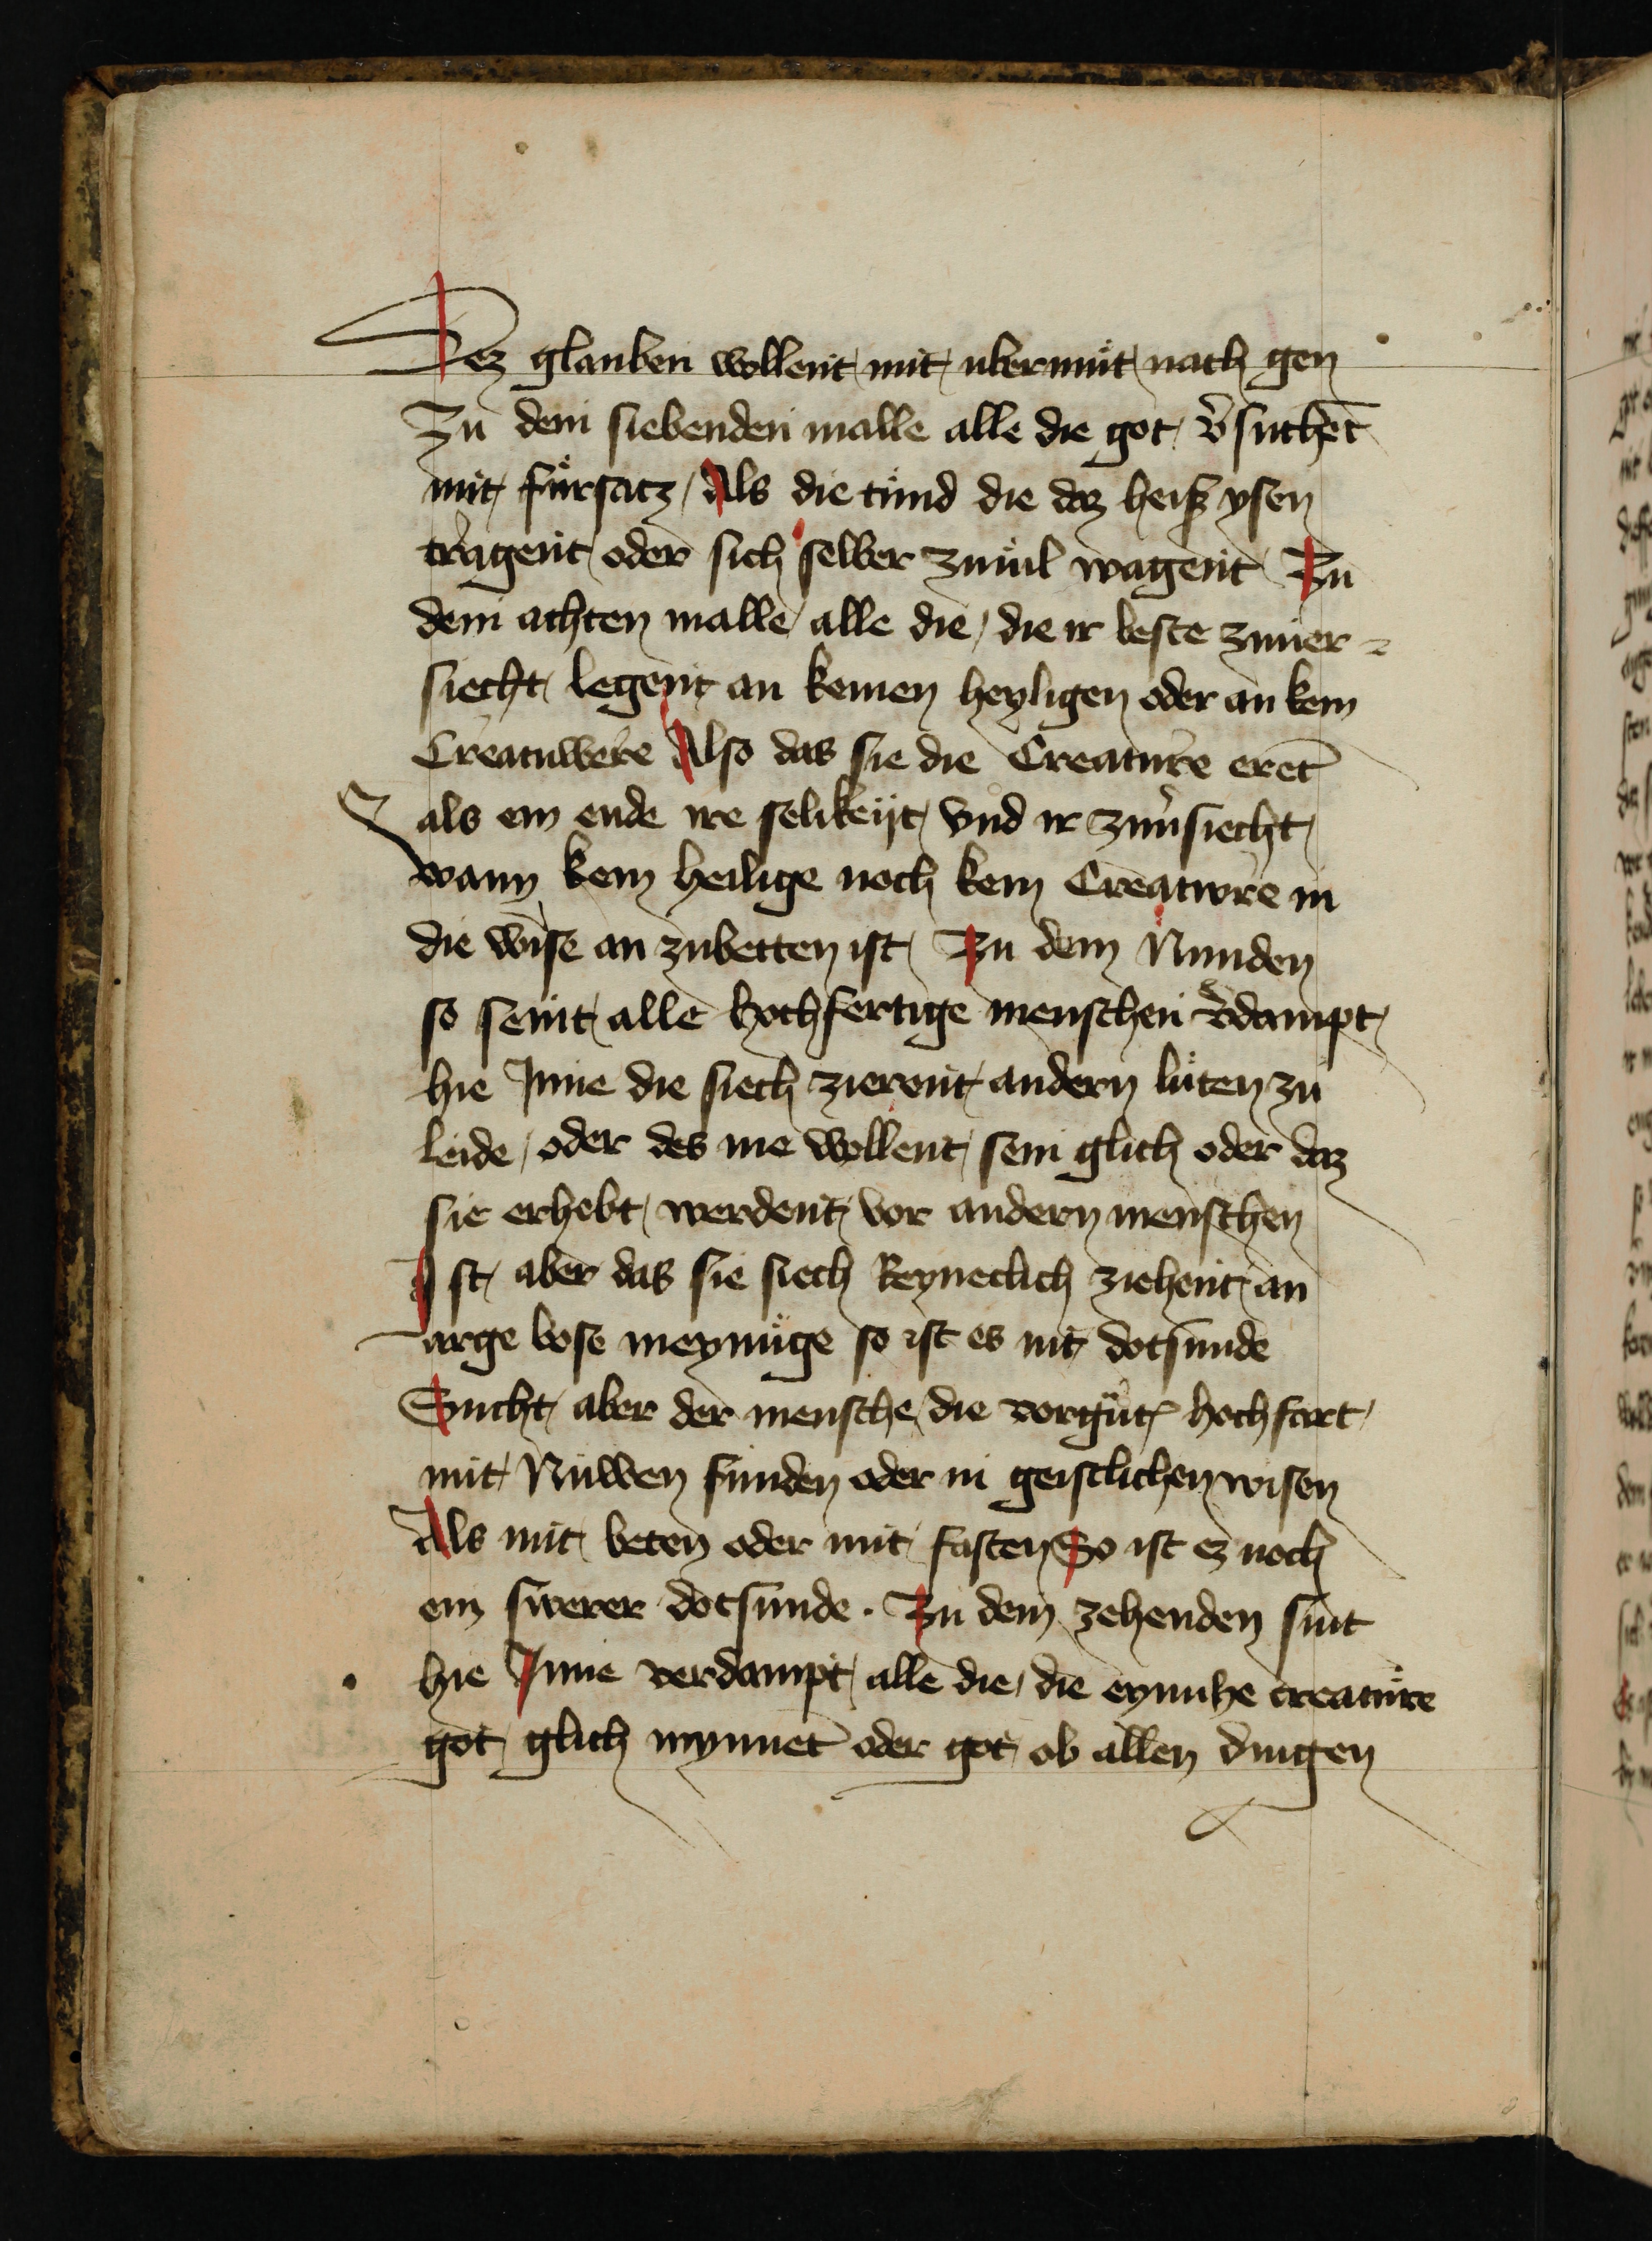 Dez glauben wollent mit ubermuͤt nach gen
Zu dem siebenden malle alle die got v̓suchet̄
mit fuͤrsatz / Als die tuͤnd die daz heiß ysen
tragent oder sich selber zumul wagent Zu
dem achten malle alle die / die ir beste zuuer=
siecht legent an keinen heyligen oder an kein
Creatuwere Also das sie die Creature eret̄
als ein ende ire selikeijt vnd ir zuu̓siecht
wann kein heilige noch kein Creatwre in
die wise an zubetten ist Zu dem Nunden
so seint alle hochfertige menschen v̓dampt
hie Inne die siech zierent andern luͤten zu
leide / oder des nie wollent sein glich oder daz
sie erhebt werdent vor andern menschen
Ist aber das sie siech Reyneclich ziehent an
arge bose meynuͤge so ist es nit dotsunde
Sucht aber der mensche die vorguͤt hochfart
mit Nuwen funden oder in geistlichen wisen
Als mit beten oder mit fasten So ist ez noch
ein swerer dotsunde . Zu dem zehenden sint
hie Inne verdampt alle die / die eyniche creatuͤre
got glich mynnet̄ oder got ob allen dingen